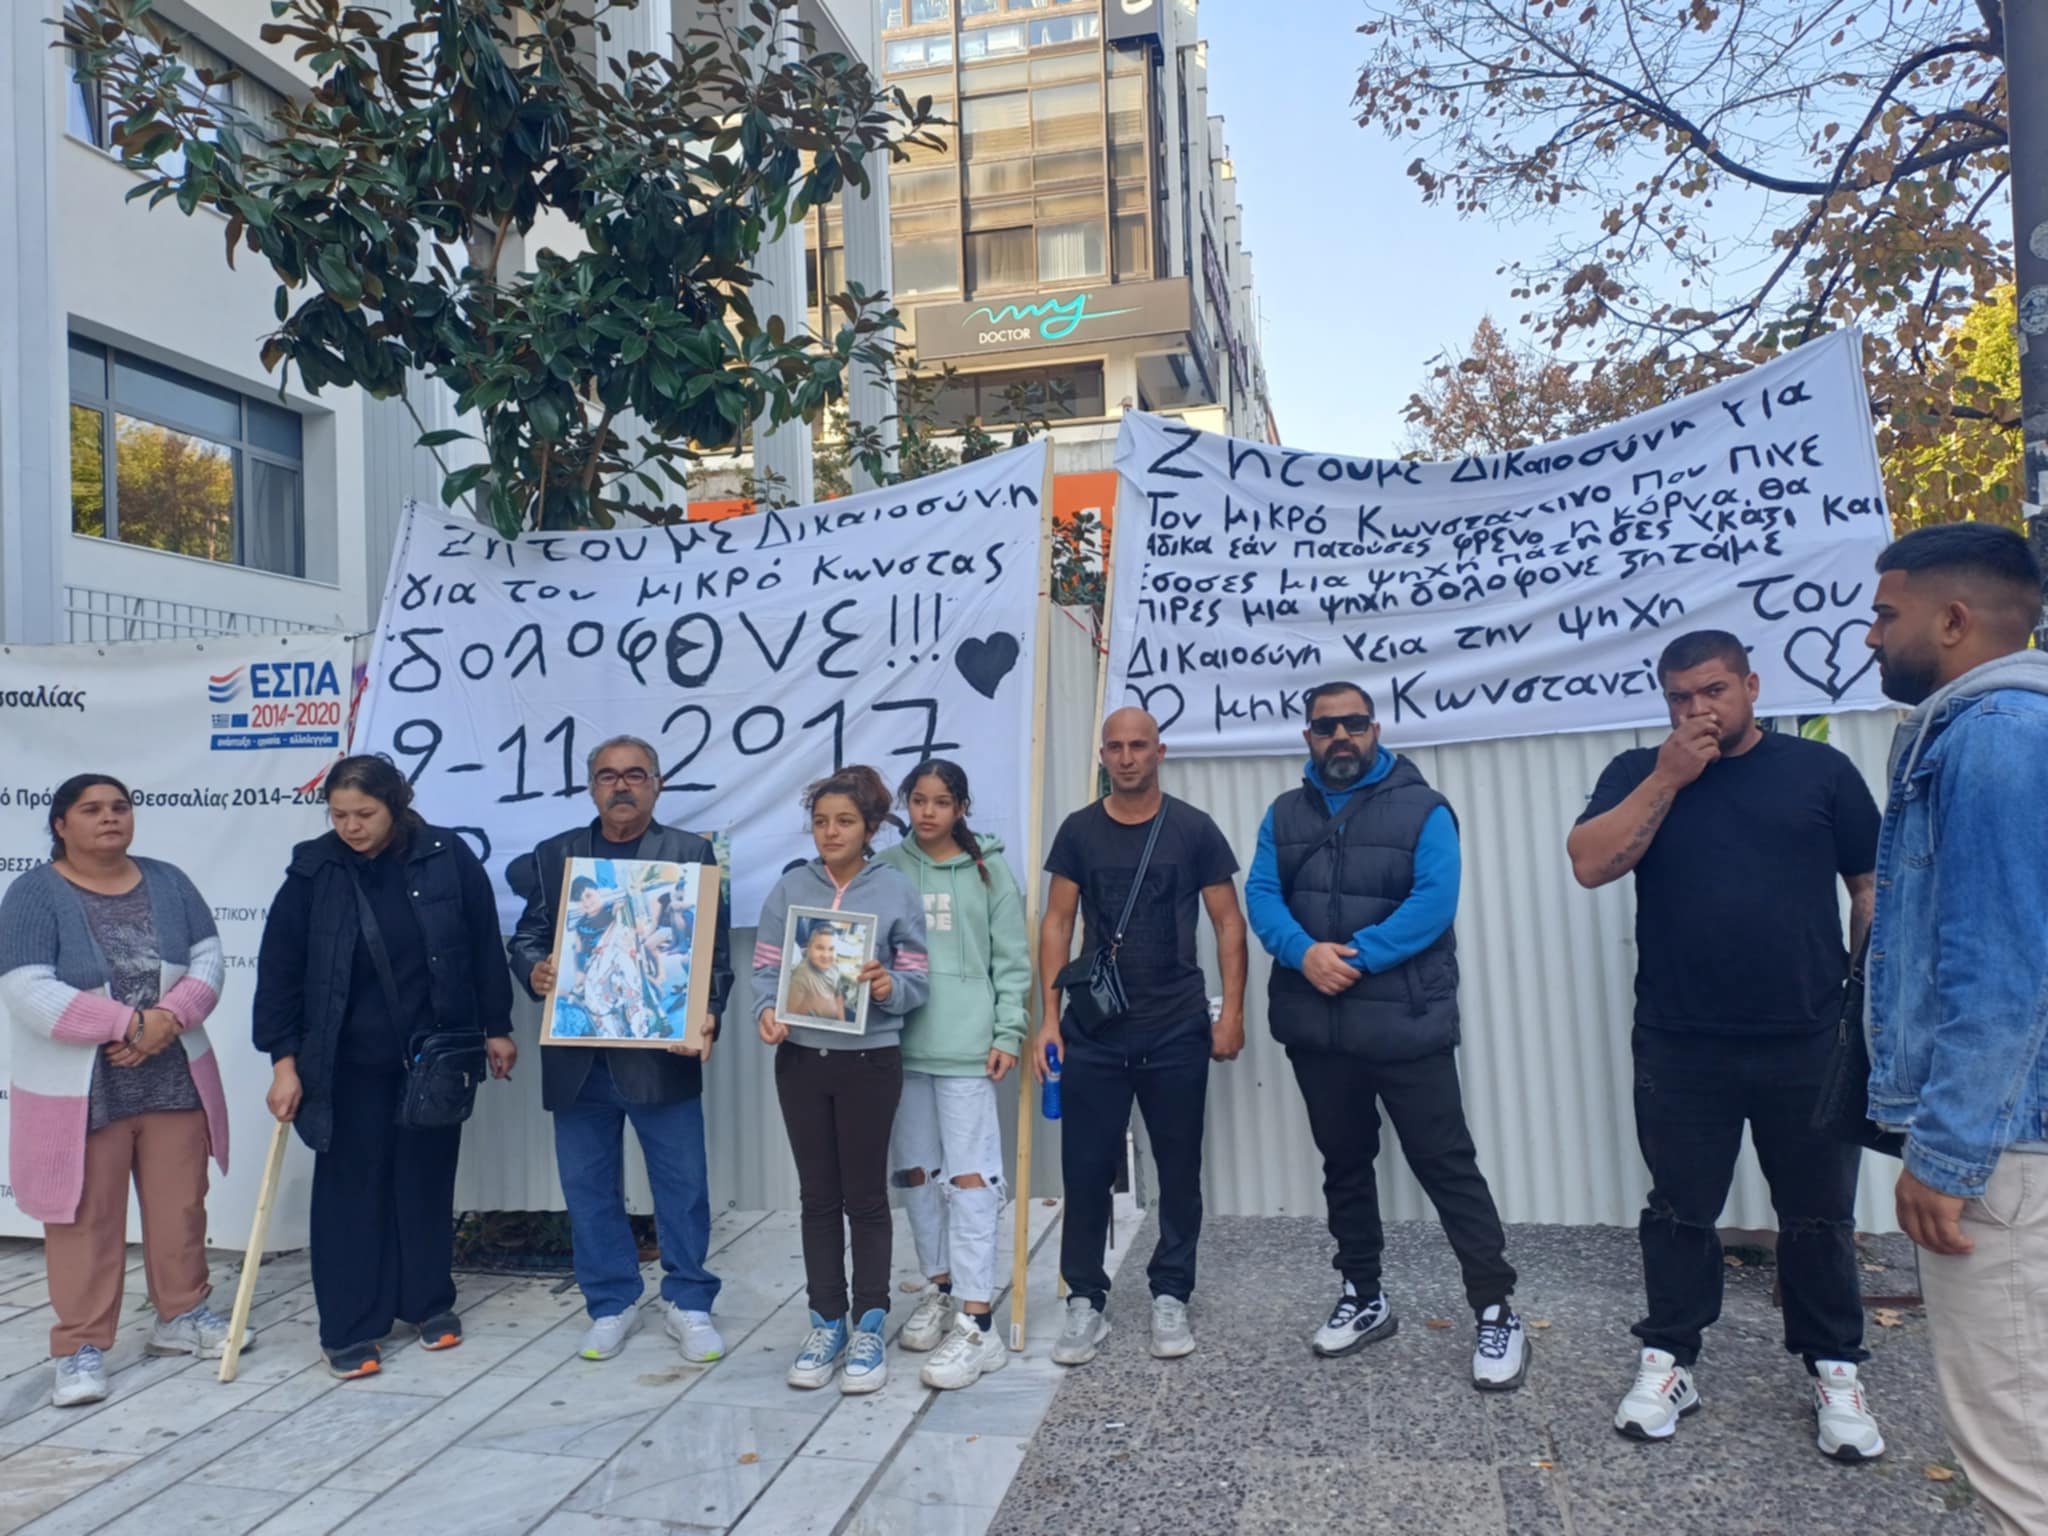 my
DOCTOR
Ζητουμε Δικαιοσύνη
για τον μικρό Κωνστας
δολοφΘνε!!!
9-11 2017
Ζητουμε Δικαιοσύνη για
Τον μικρό Κωνσταντινο που πινε
Αδικα εάν πατούσες φρενο η κόρνα, θα
Έσοσες μια ψηχή πάτησες γκάζι και
πιρες μια ψηχη δολοφονε ζητάμε
Δικαιοσύνη γεια την ψηχη του
μηκρ Κωνσταντί
σσαλίας
ΕΣΠΑ
2014-2020
ανάπτυξη - εργασία - αλληλεγγύη
ό Πρό Θεσσαλίας 2014–202
ΘΕΣΣΑ
ΣΤΙΚΟΥ Μ
ΣΤΑ Κ
TR
DE